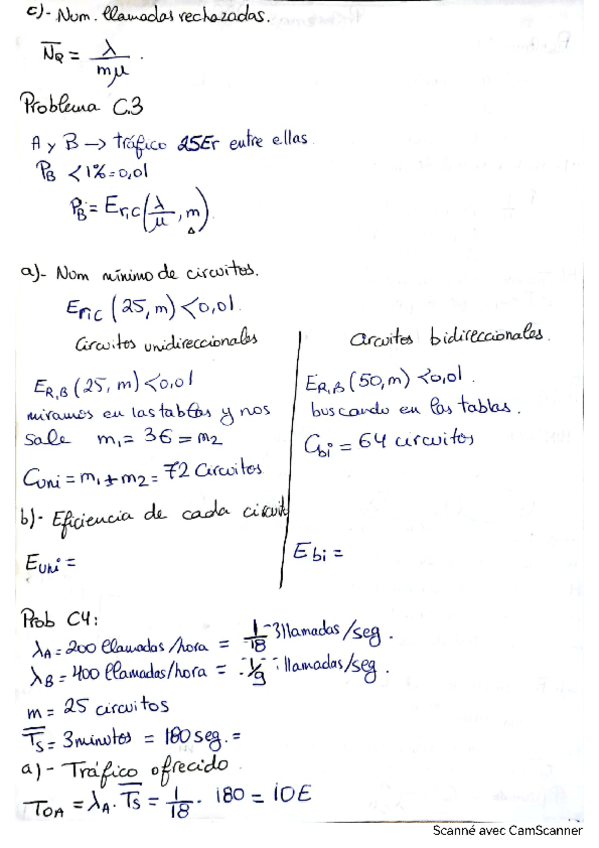 c)- Num. llamadas rechazadas.
N̄_R = λ / mμ .
Problema C.3
A y B → tráfico 25Er entre ellas
P_B < 1% = 0,01
P_B = Er,c (λ/μ, m)
a)- Num mínimo de circuitos.
Er,c (25, m) < 0,01.
Circuitos unidireccionales
E_R,B (25, m) < 0,01
miramos en las tablas y nos
sale m₁ = 36 = m₂
C_uni = m₁ + m₂ = 72 Circuitos
Circuitos bidireccionales.
E_R,B (50, m) < 0,01.
buscando en las tablas.
C_bi = 64 circuitos
b)- Eficiencia de cada circuit
E_uni =
E_bi =
Prob C4:
λ_A = 200 llamadas/hora = 1/18 llamadas/seg.
λ_B = 400 llamadas/hora = 1/9 llamadas/seg.
m = 25 circuitos
T̄s = 3 minutos = 180 seg. =
a)- Tráfico ofrecido
T_OA = λ_A · T̄s = 1/18 · 180 = 10E
Scanné avec CamScanner